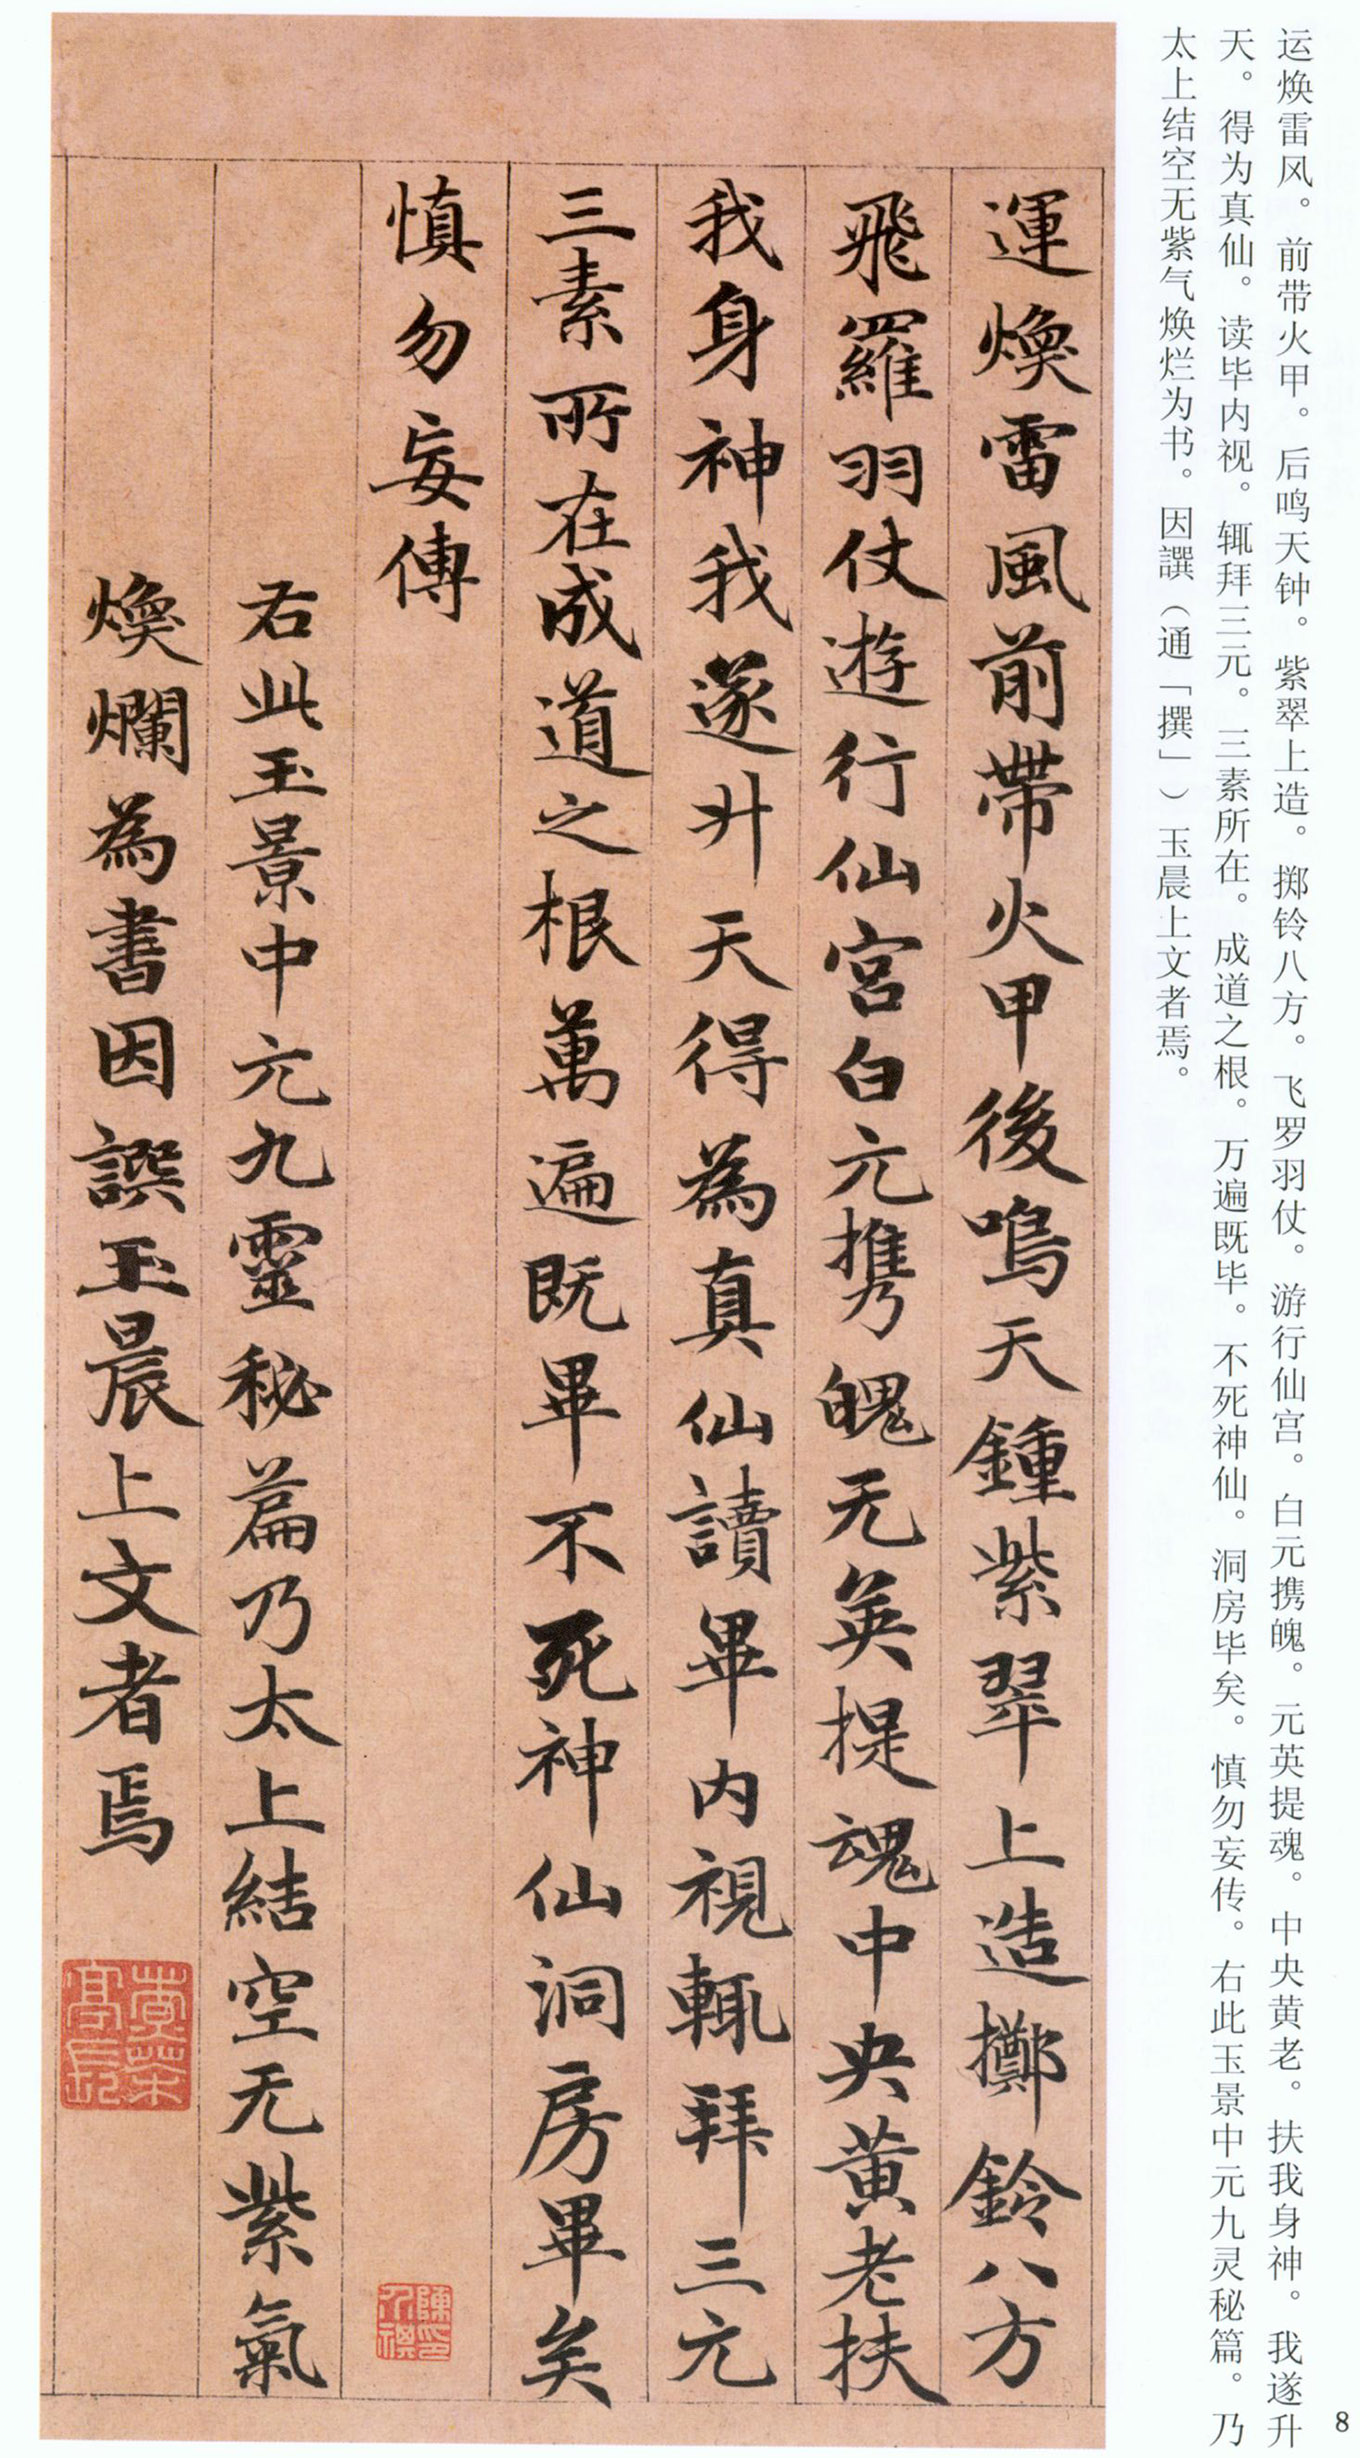 运焕雷风。前带火甲。后鸣天钟。紫翠上造。掷铃八方。飞罗羽仗。游行仙宫。白元携魄。元英提魂。中央黄老。扶我身神。我遂升
天。得为真仙。读毕内视。辄拜三元。三素所在。成道之根。万遍既毕。不死神仙。洞房毕矣。慎勿妄传。右此玉景中元九灵秘篇。乃
太上结空无紫气焕烂为书。因譔（通「撰」）玉晨上文者焉。
運煥雷風前帶火甲後鳴天鍾紫翠上造擲鈴八方
飛羅羽仗遊行仙宮白元攜魄无英提魂中央黃老扶
我身神我遂升天得為真仙讀畢內視輒拜三元
三素所在成道之根萬遍既畢不死神仙洞房畢矣
慎勿妄傳
右此玉景中元九靈秘篇乃太上結空无紫氣
煥爛為書因譔玉晨上文者焉
8